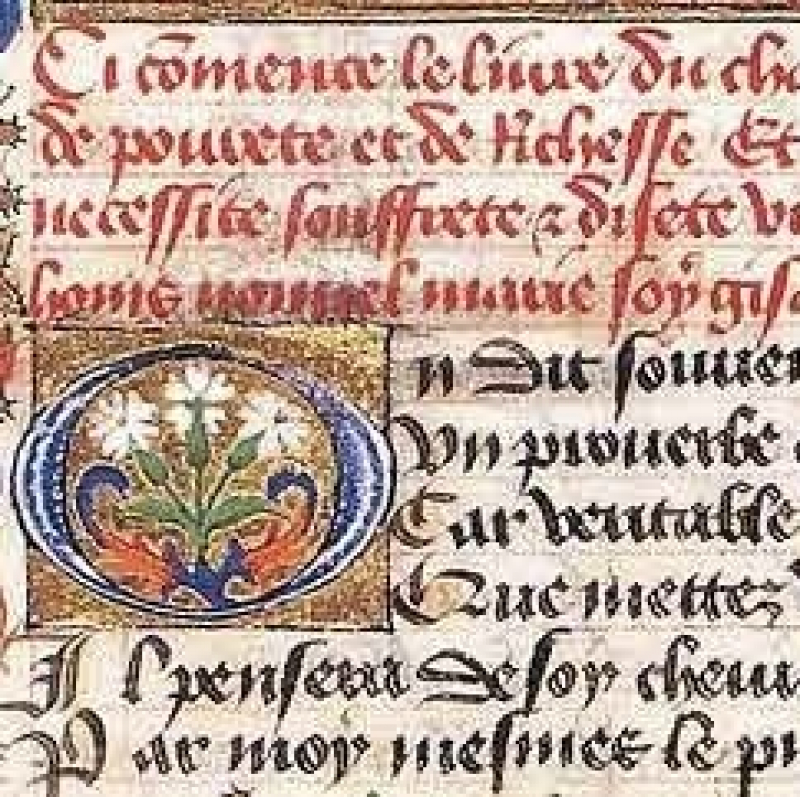 Ci cōmence le liure du che
de pourete et de Richesse Et
necessite souffrete ⁊ disete vo
homs nouuel marie soy gisa
On dit souuen
Vn prouerbe
Car veritable
Que mettez
Il pensera de soy cheui
Par moy mesmes le pr